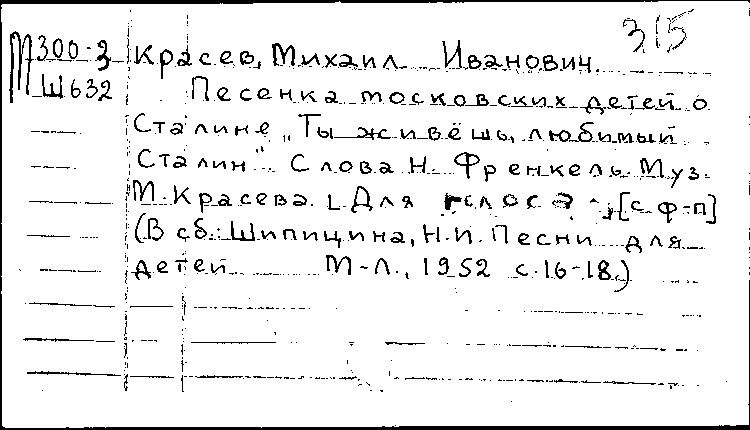 315
М300-3 Красев, Михаил Иванович.
Ш632 Песенка московских детей о
Сталине „Ты живёшь, любимый
Сталин". Слова Н. Френкель. Муз.
М. Красева. Для голоса [с ф-п]
(В сб.: Шипицина, Н.И. Песни для
детей М-Л., 1952 с. 16-18.)